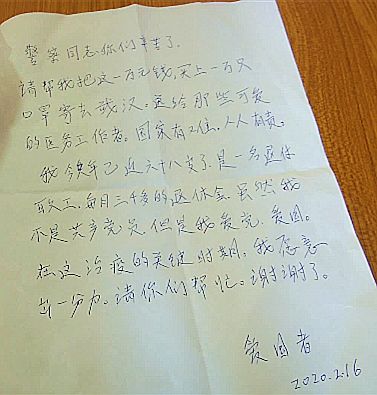 警察同志.你们辛苦了.
请帮我把这一万元钱,买上一万只
口罩寄去武汉.送给那些可爱
的医务工作者.国家有位.人人有责.
我今年已近六十八岁了.是一名退休
职工.每月三千多的退休金.虽然我
不是共产党员.但是我爱党.爱国.
在这治疫的关键时期.我愿意
出一分力.请你们帮忙.谢谢了.
爱国者
2020.2.16